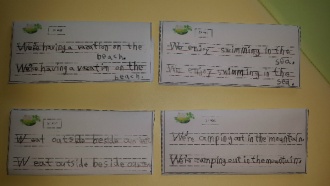 We're having a vacation on the
beach.
We're having a vacation on the
beach.
We enjoy swimming in the
sea.
We enjoy swimming in the
sea.
W eat outside beside our
W eat outside beside our
We're camping out in the mountain.
We're camping out in the mountain.